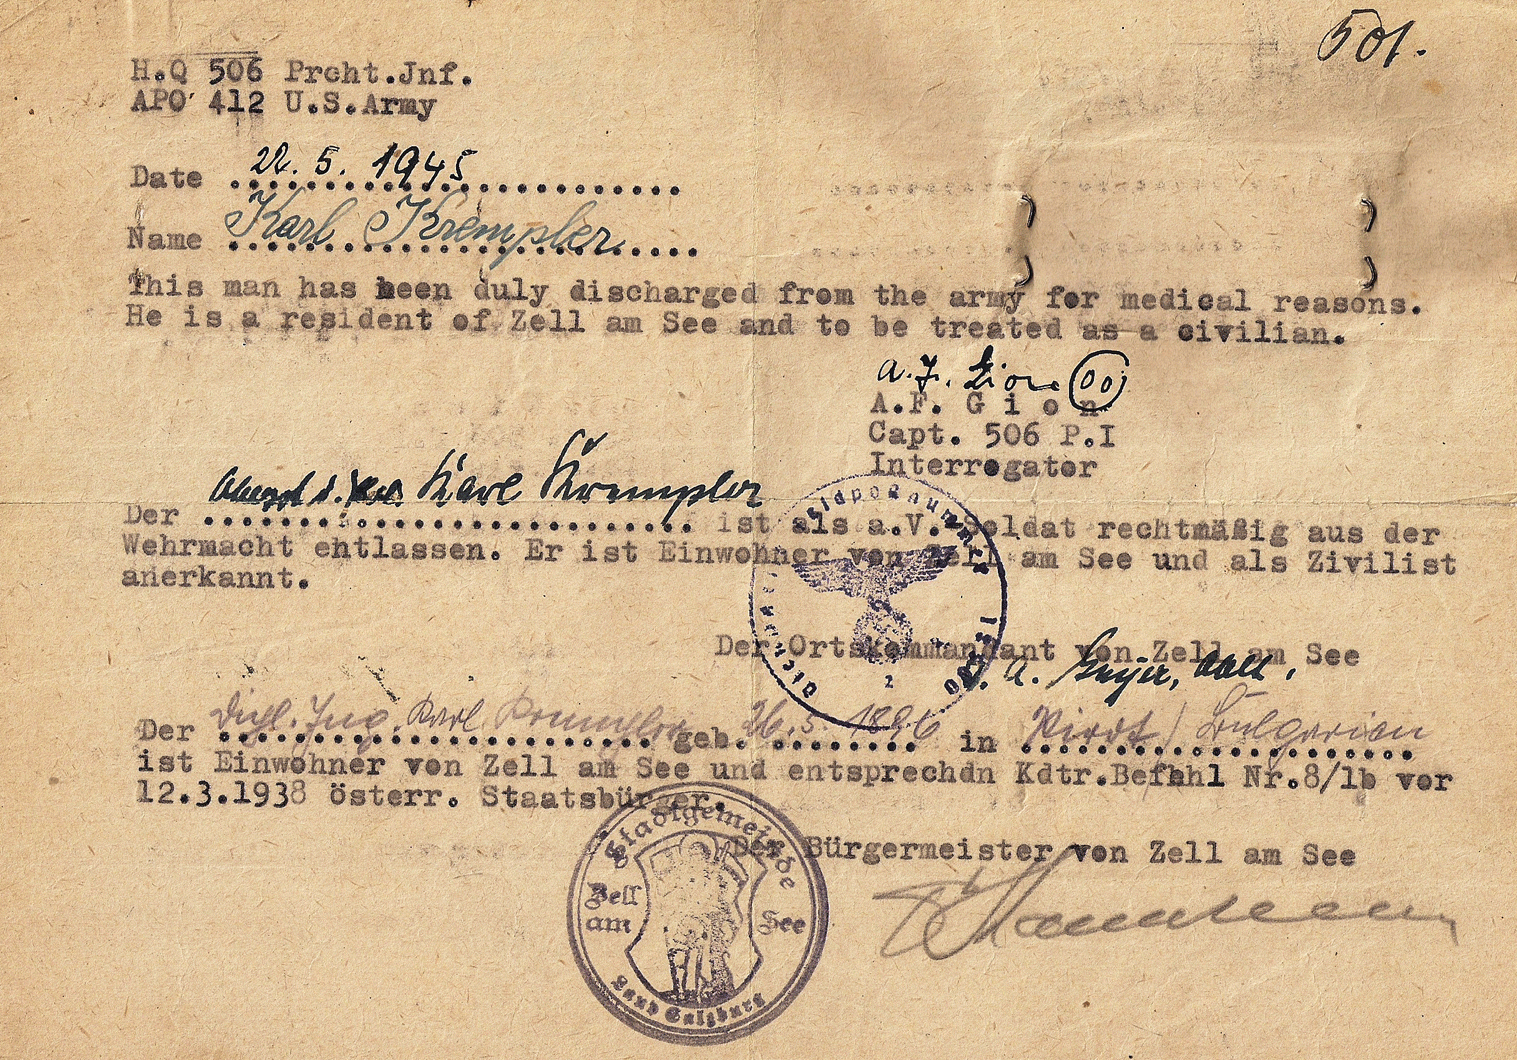 501.
H.Q 506 Prcht.Jnf.
APO 412 U.S.Army
Date 22.5.1945
Name Karl Krempler
This man has been duly discharged from the army for medical reasons.
He is a resident of Zell am See and to be treated as a civilian.
A.F. Gion
A.F. G i o n
Capt. 506 P.I
Interrogator
Der Karl Krempler ist als a.V. Soldat rechtmäßig aus der
Wehrmacht entlassen. Er ist Einwohner von Zell am See und als Zivilist
anerkannt.
Feldpostnummer
Der Ortskommandant von Zell am See
2
Der Dipl. Ing. Karl Krempler geb. 26.5.1896 in Pirot / Bulgarien
ist Einwohner von Zell am See und entsprechdn Kdtr.Befehl Nr.8/lb vor
12.3.1938 österr. Staatsbürger.
Der Bürgermeister von Zell am See
Stadtgemeinde
Zell am See
Land Salzburg